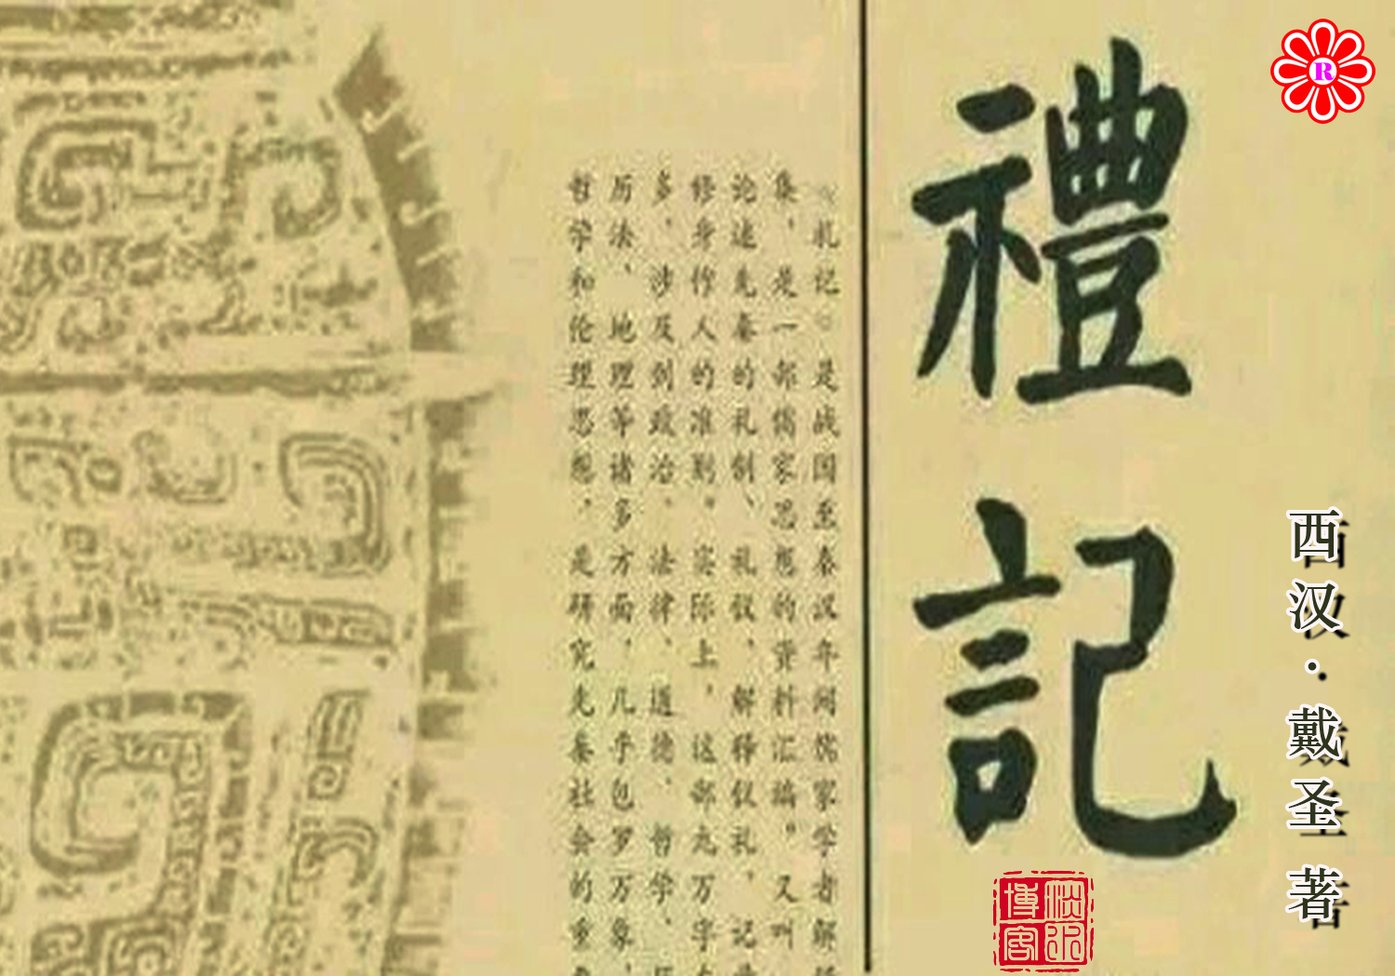 R
西汉·戴圣 著
禮記
博客
《礼记》是战国至秦汉年间儒家学者解
集，是一部儒家思想的资料汇编。又叫
论述先秦的礼制、礼仪，解释仪礼，记
修身作人的准则。实际上，这部九万字
多，涉及到政治、法律、道德、哲学、
历法、地理等诸多方面，几乎包罗万象，
哲学和伦理思想，是研究先秦社会的重